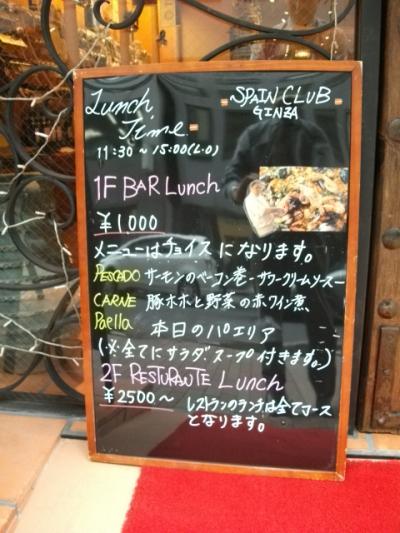 Lunch Time
SPAIN CLUB
GINZA
11:30～15:00(L.O)
1F BAR Lunch
¥1000
メニューはチョイスになります。
PESCADO サーモンのベーコン巻-サワークリームソース-
CARNE 豚ホホと野菜の赤ワイン煮
Paella 本日のパエリア
(※全てにサラダ、スープ付きます。)
2F RESTURANTE Lunch
¥2500～ レストランのランチは全てコース
となります。